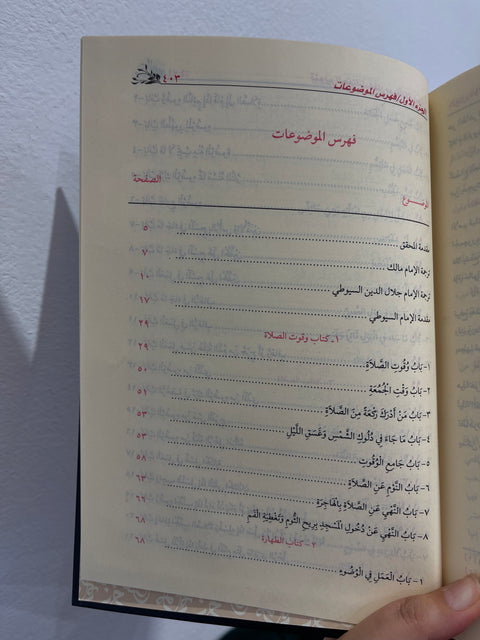 الجزء الأول/فهرس الموضوعات ٤٠٣
فهرس الموضوعات
الموضوع الصفحة
مقدمة المحقق ٥
ترجمة الإمام مالك ٧
ترجمة الإمام جلال الدين السيوطي ١٠
مقدمة الإمام السيوطي ١٧
١- كتاب وقوت الصلاة ٢٩
١- بَابُ وُقُوتِ الصَّلَاةِ ٢٩
٢- بَابُ وَقْتِ الْجُمُعَةِ ٥٠
٣- بَابُ مَنْ أَدْرَكَ رَكْعَةً مِنَ الصَّلَاةِ ٥١
٤- بَابُ مَا جَاءَ فِي دُلُوكِ الشَّمْسِ وَغَسَقِ اللَّيْلِ ٥٣
٥- بَابُ جَامِعِ الْوُقُوتِ ٥٣
٦- بَابُ النَّوْمِ عَنِ الصَّلَاةِ ٥٨
٧- بَابُ النَّهْيِ عَنِ الصَّلَاةِ بِالْهَاجِرَةِ ٦٣
٨- بَابُ النَّهْيِ عَنْ دُخُولِ الْمَسْجِدِ بِرِيحِ الثُّومِ وَتَغْطِيَةِ الْفَمِ ٦٦
٢- كتاب الطهارة ٦٨
١- بَابُ الْعَمَلِ فِي الْوُضُوءِ ٦٨